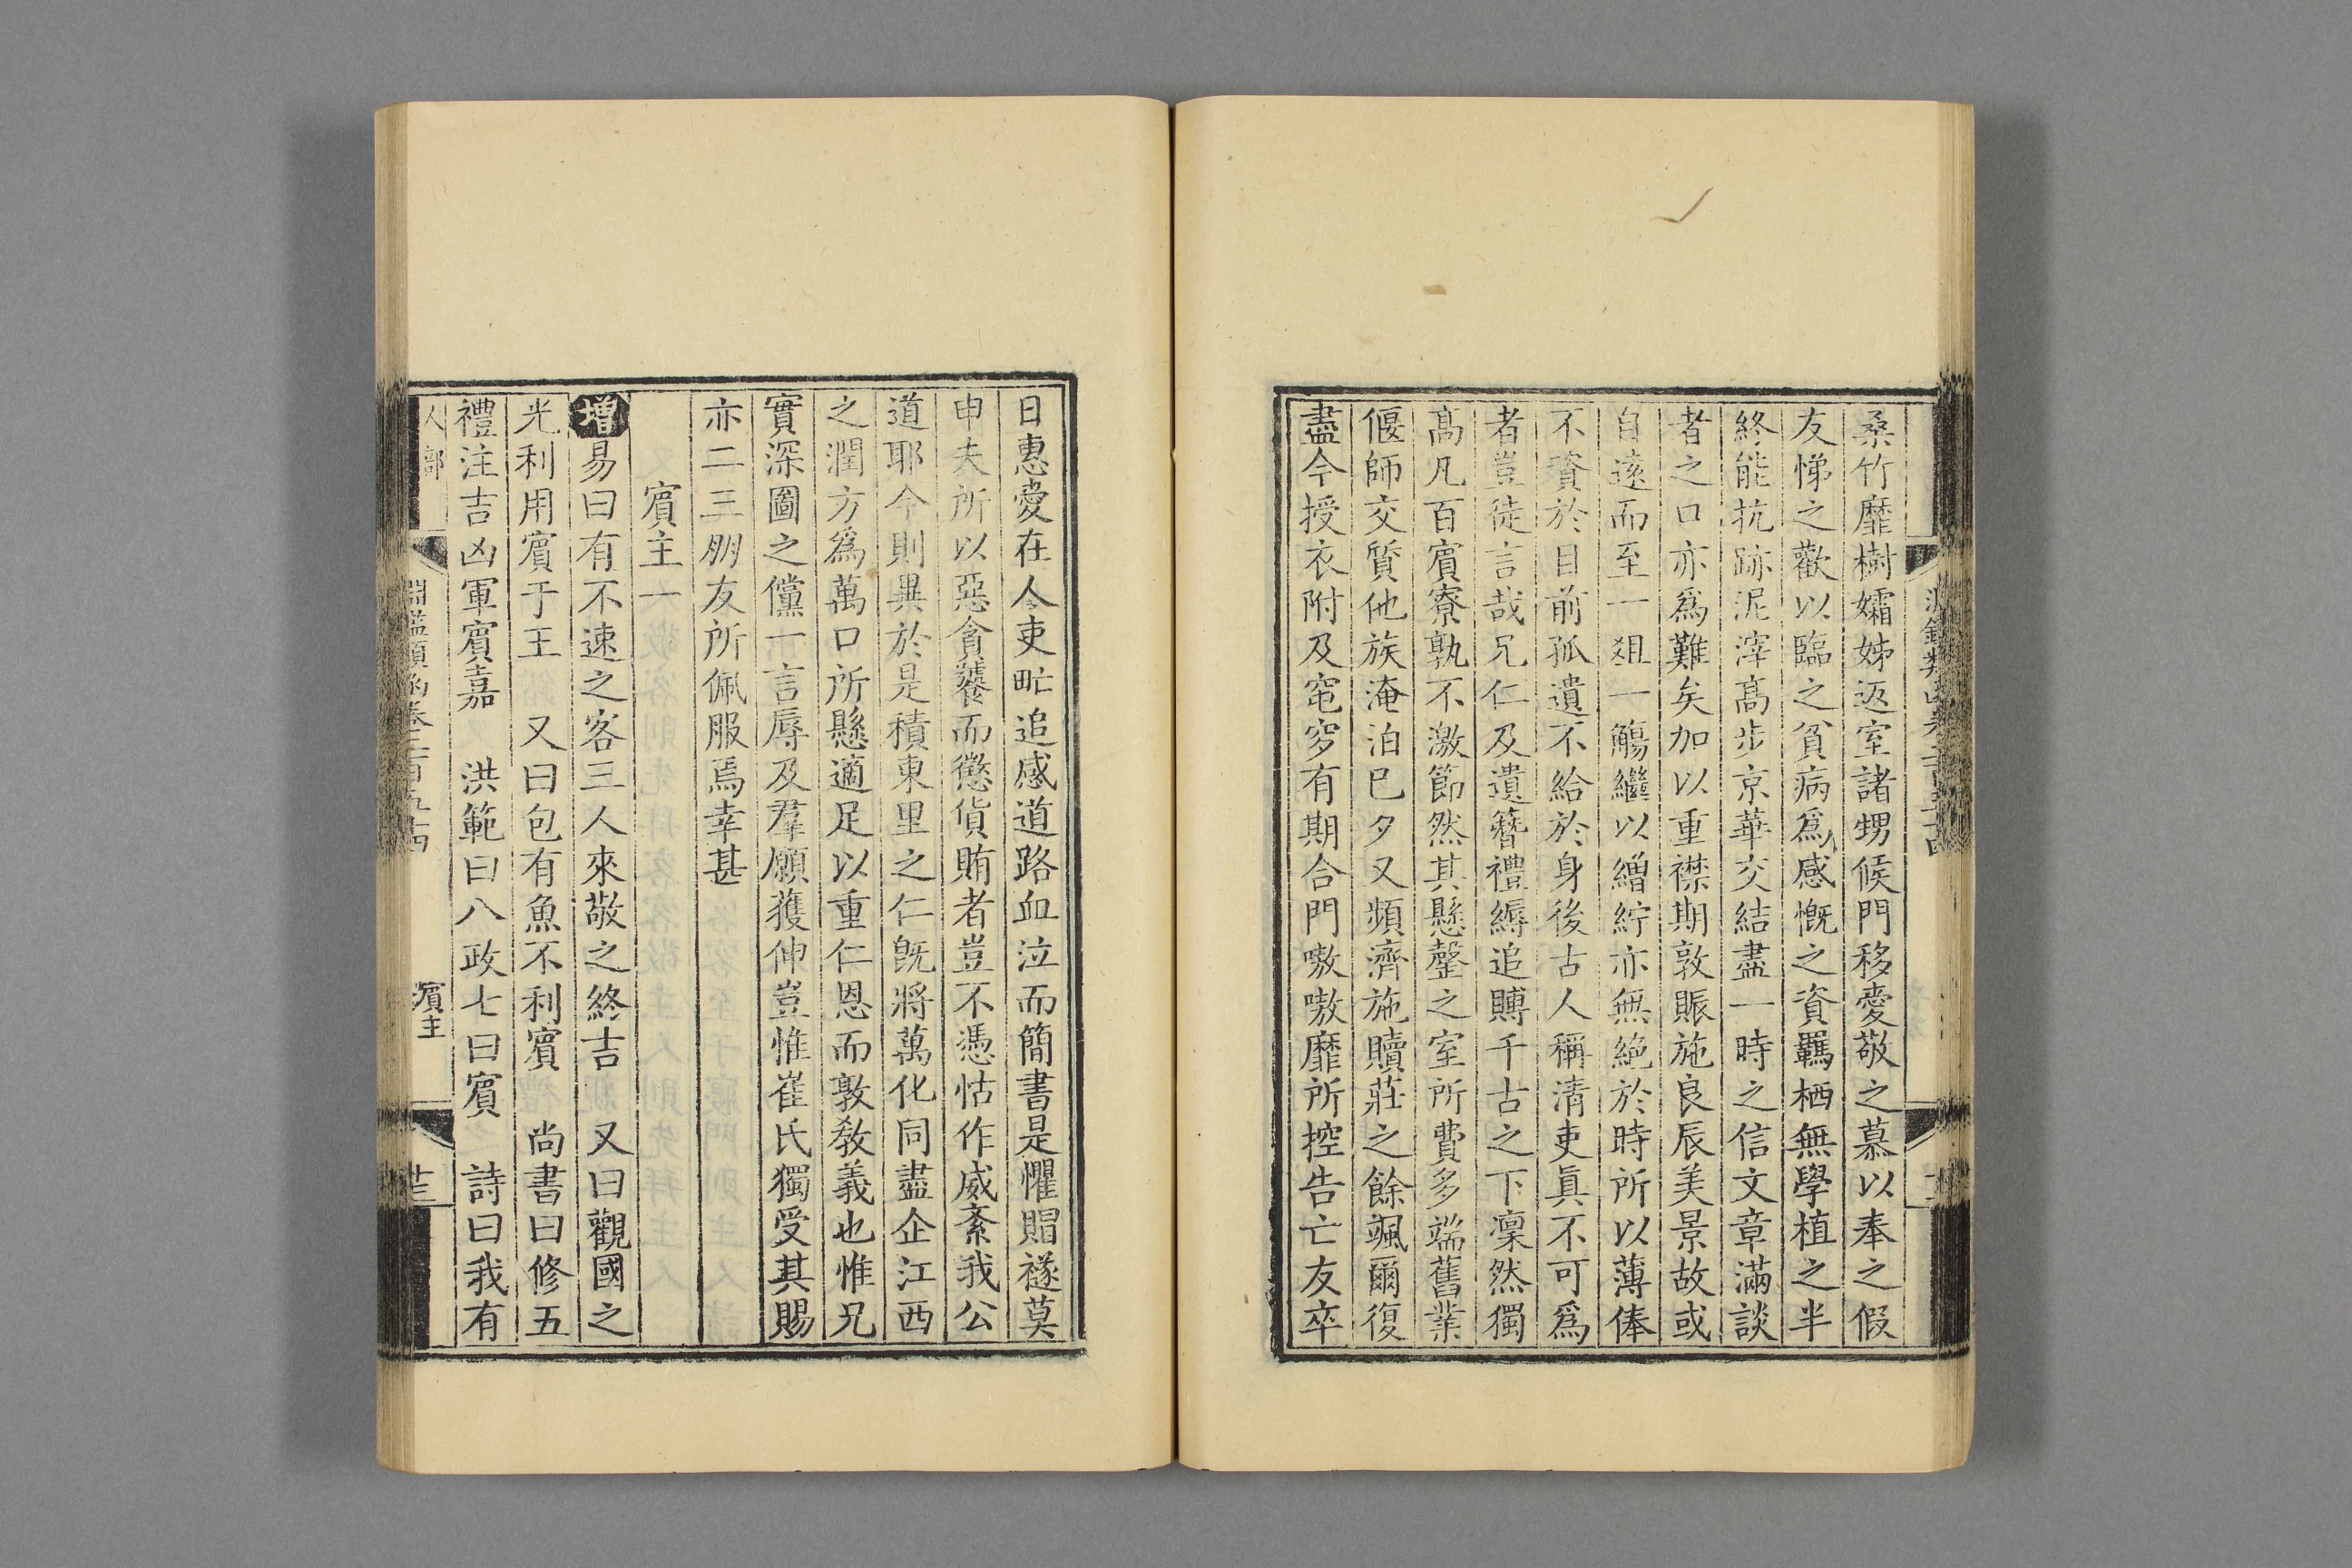 桑竹靡樹孀姊返室諸甥候門移愛敬之慕以奉之假
友悌之歡以臨之貧病爲感慨之資羈栖無學植之半
終能抗跡泥滓高步京華交結盡一時之信文章滿談
者之口亦爲難矣加以重襟期敦賑施良辰美景故或
自遠而至一俎一觴繼以繒紵亦無絶於時所以薄俸
不資於目前孤遺不給於身後古人稱清吏眞不可爲
者豈徒言哉兄仁及遺簪禮縟追賻千古之下凜然獨
高凡百賓寮孰不激節然其懸罄之室所費多端舊業
偃師交質他族淹泊巳夕又頻濟施贖莊之餘颯爾復
盡今授衣附及窀穸有期合門嗷嗷靡所控告亡友卒
日惠愛在人吏甿追感道路血泣而簡書是懼賵襚莫
申夫所以惡貪饕而懲貨賄者豈不憑怙作威紊我公
道耶今則異於是積東里之仁旣將萬化同盡企江西
之潤方爲萬口所懸適足以重仁恩而敦敎義也惟兄
實深圖之儻一言辱及羣願獲伸豈惟崔氏獨受其賜
亦二三朋友所佩服焉幸甚
賓主一
增易曰有不速之客三人來敬之終吉 又曰觀國之
光利用賓于王 又曰包有魚不利賓 尚書曰修五
禮注吉凶軍賓嘉 洪範曰八政七曰賓 詩曰我有
人部
淵鑑類函卷三百五十四
賓主